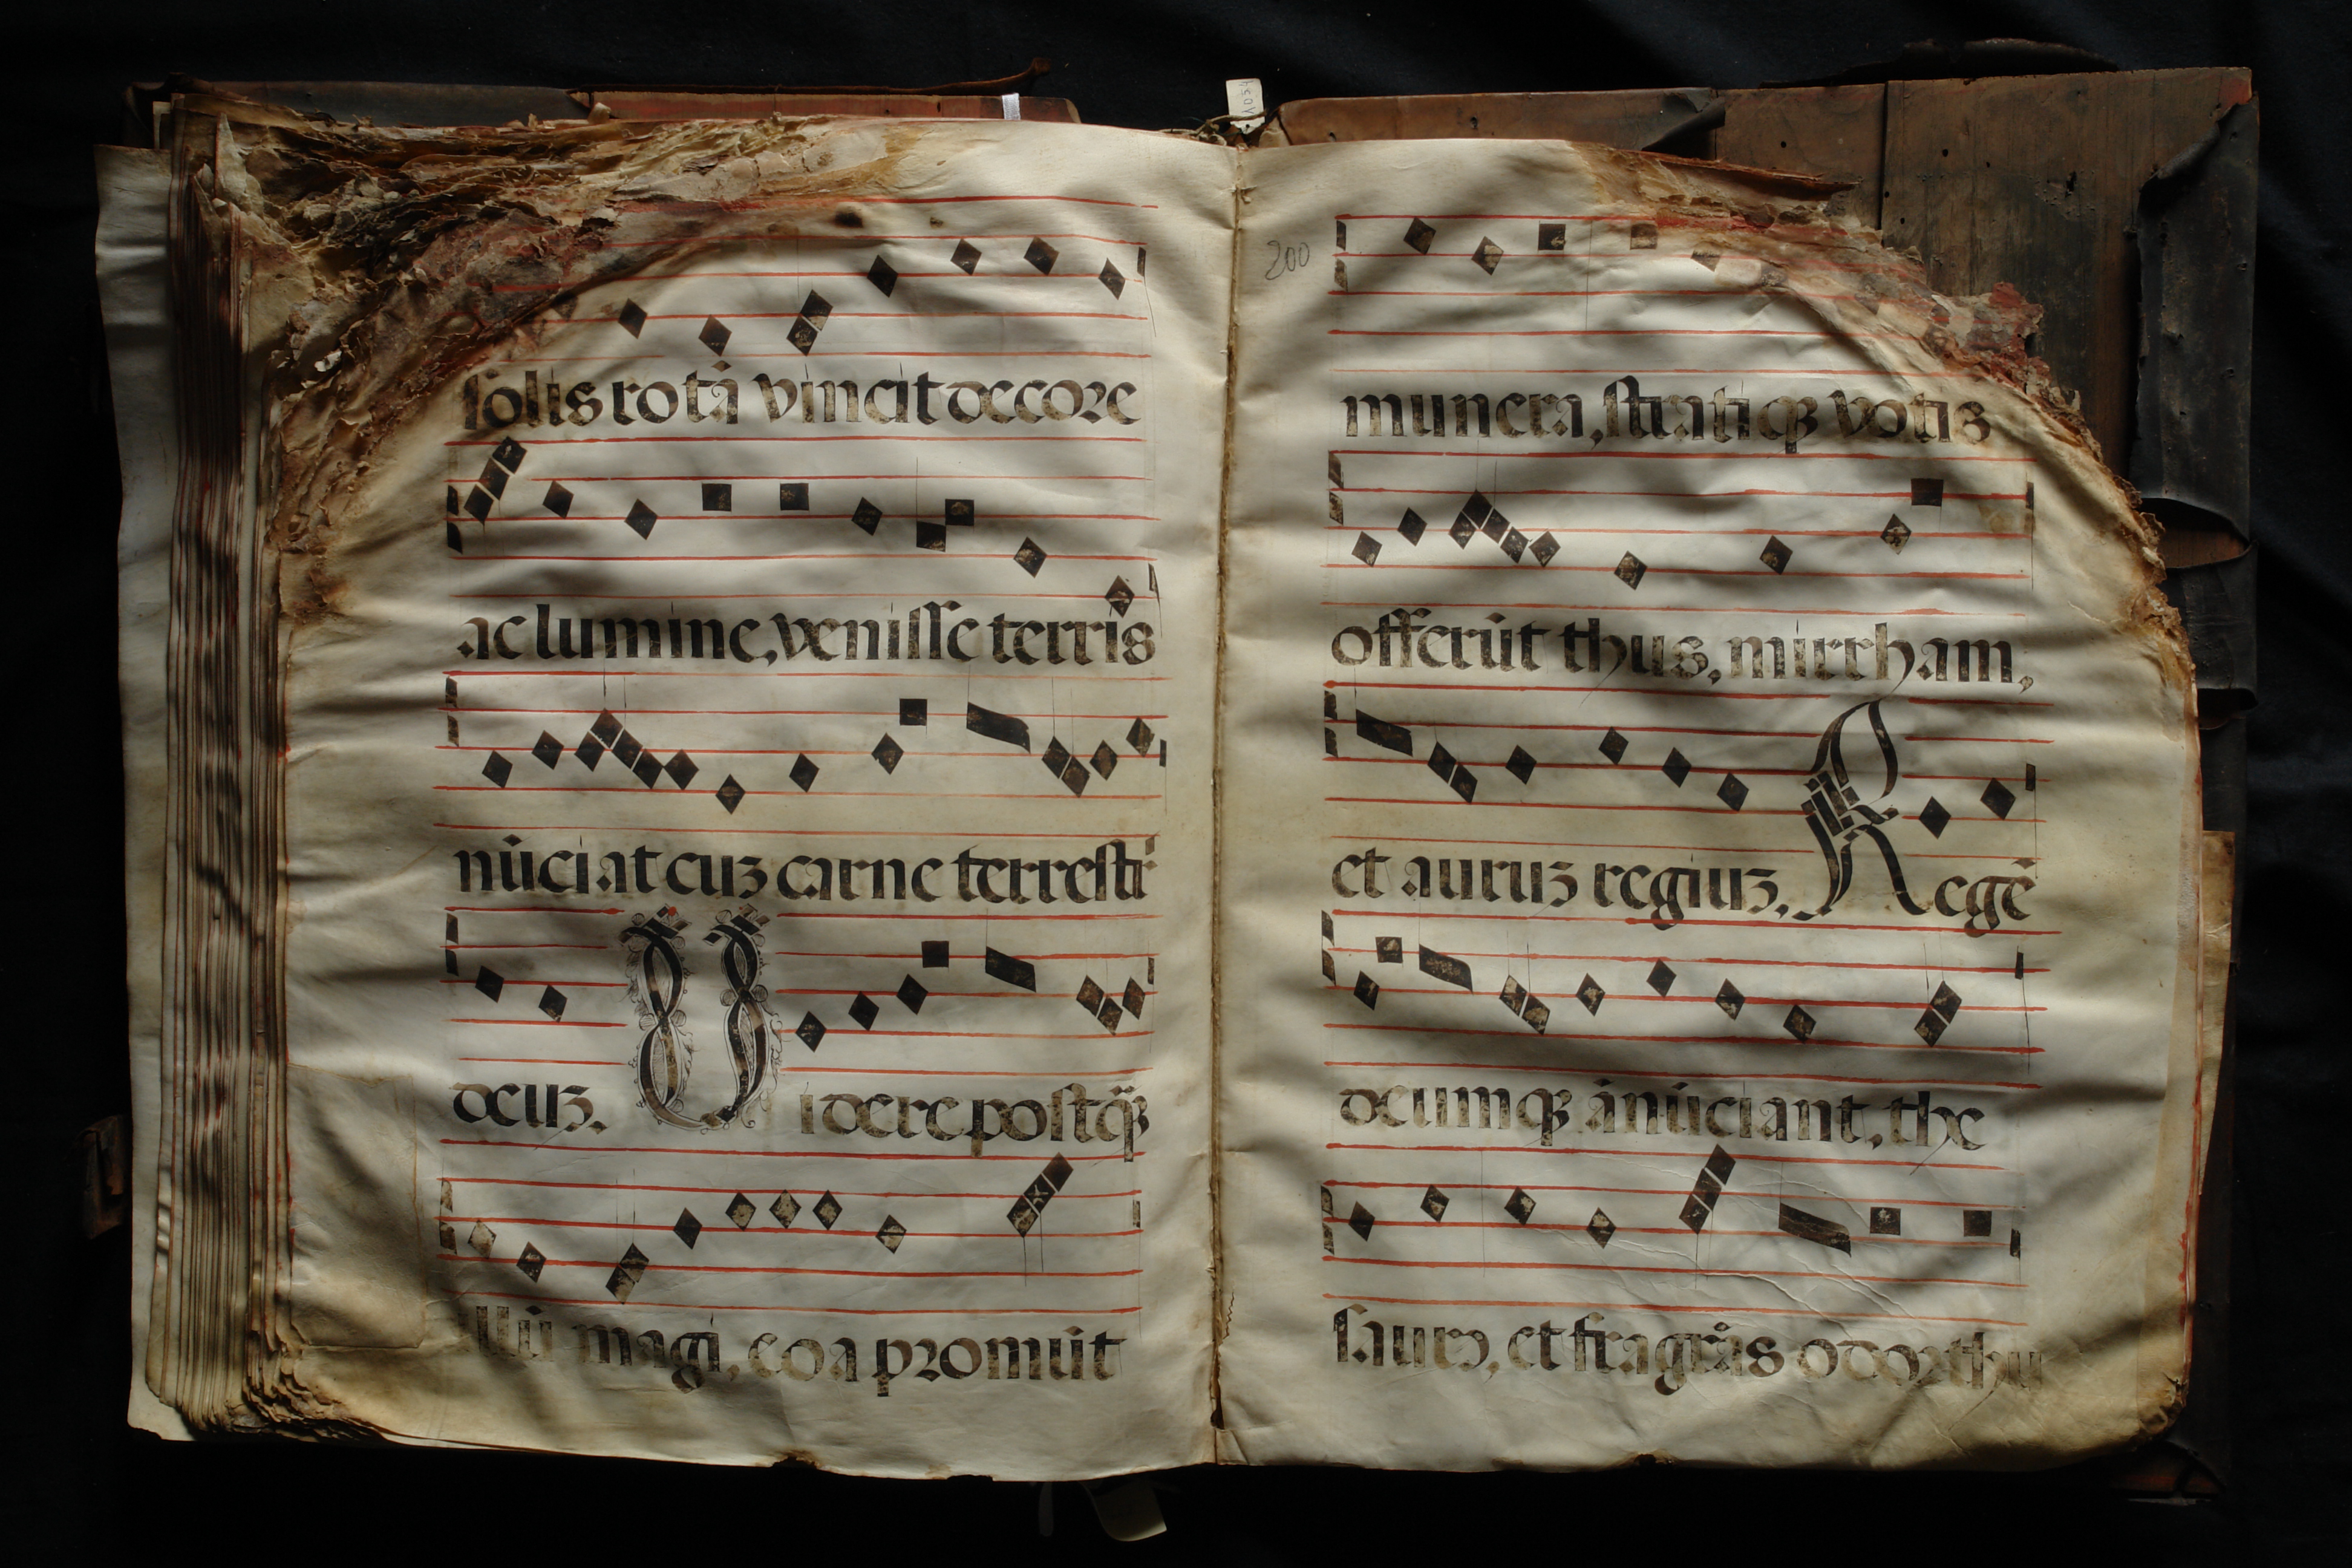 solis rotā vincit decore
ac lumine, venisse terris
nūciat cuʒ carne terrestri
deuʒ. Videre postq̄ʒ
illū magi, eoa promūt
200
munera, stratiqʒ votis
offerūt thus, mirrham,
et auruʒ regiuʒ. Regē
deumqʒ ānūciant, the
saurꝰ, et fragrās odor thu